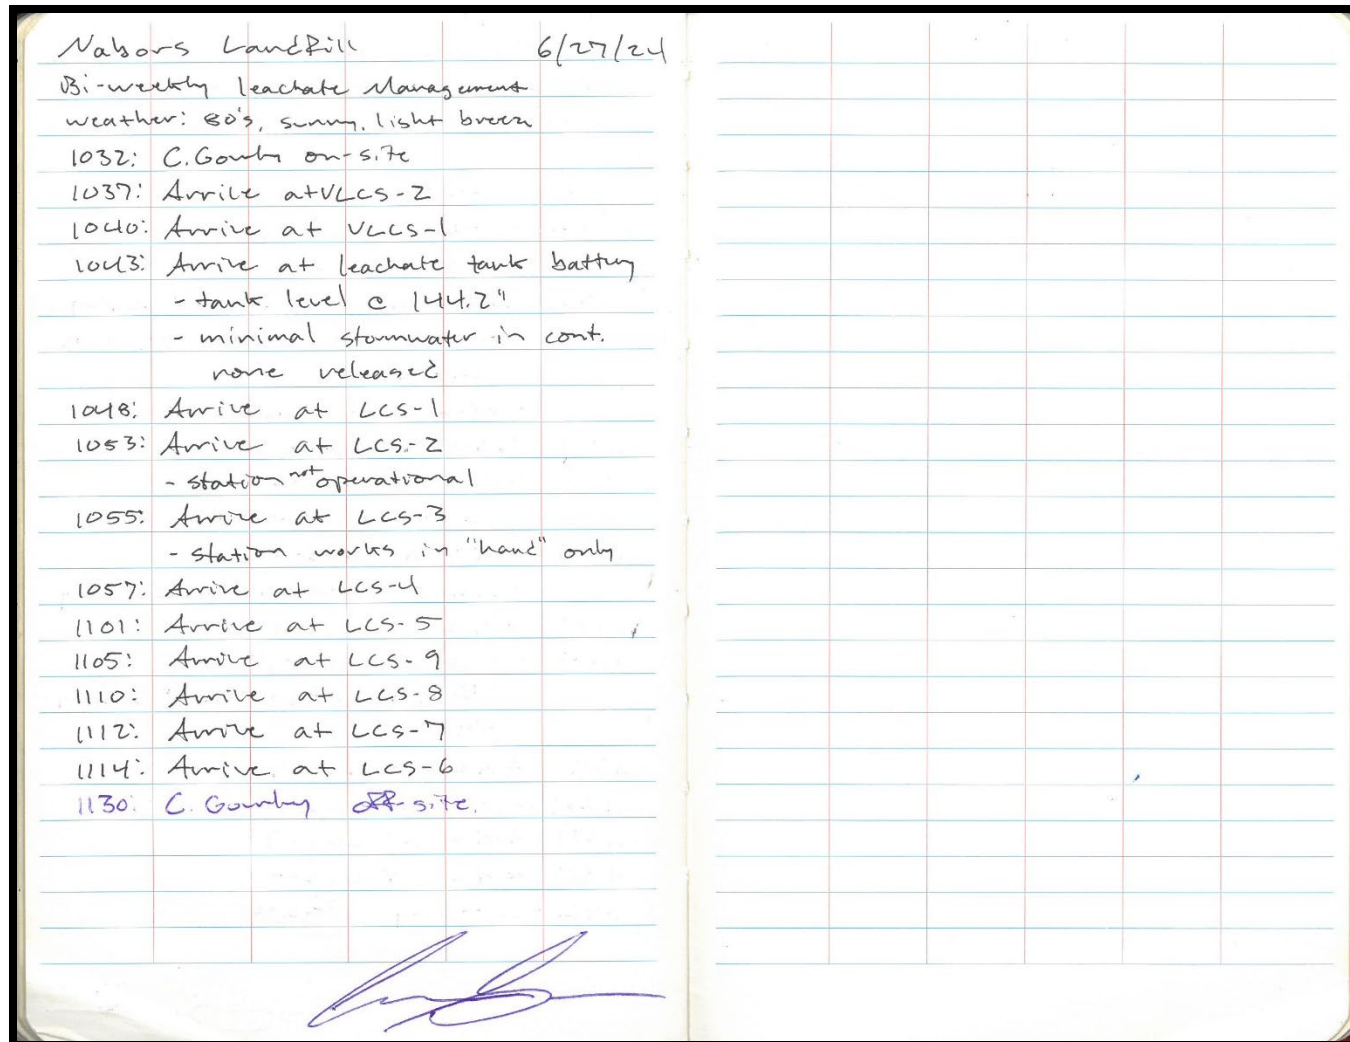 Nabors Landfill 6/27/24
Bi-weekly leachate Management
weather: 80's, sunny, light breeze
1032: C. Gourley on-site
1037: Arrive at VLCS-2
1040: Arrive at VLCS-1
1043: Arrive at leachate tank battery
- tank level @ 144.2"
- minimal stormwater in cont.
none released
1048: Arrive at LCS-1
1053: Arrive at LCS-2
- station not operational
1055: Arrive at LCS-3
- station works in "hand" only
1057: Arrive at LCS-4
1101: Arrive at LCS-5
1105: Arrive at LCS-9
1110: Arrive at LCS-8
1112: Arrive at LCS-7
1114: Arrive at LCS-6
1130: C. Gourley off-site.